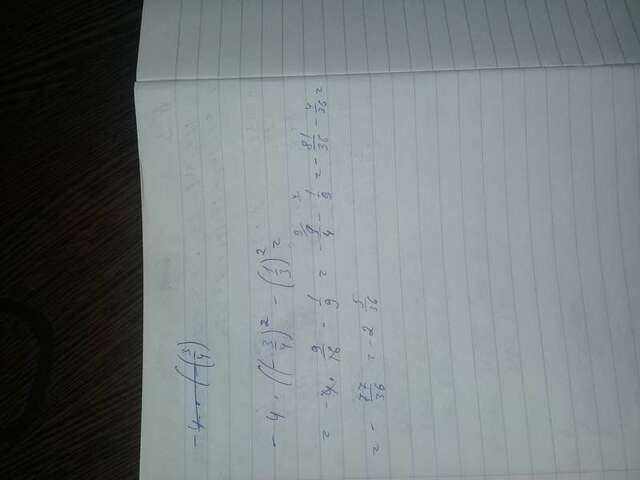 - 4 · (-(3/4)
- 4 · ((-3/4)² - (1/3)² =
= - 4 · 9/16 - 1/9 = - 9/4 - 1/9 = - 81/36 - 4/36 =
= - 77/36 = - 2 5/36